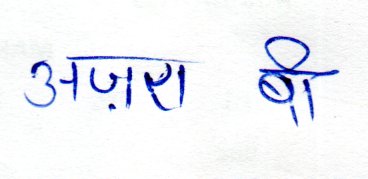 अज़रा बी